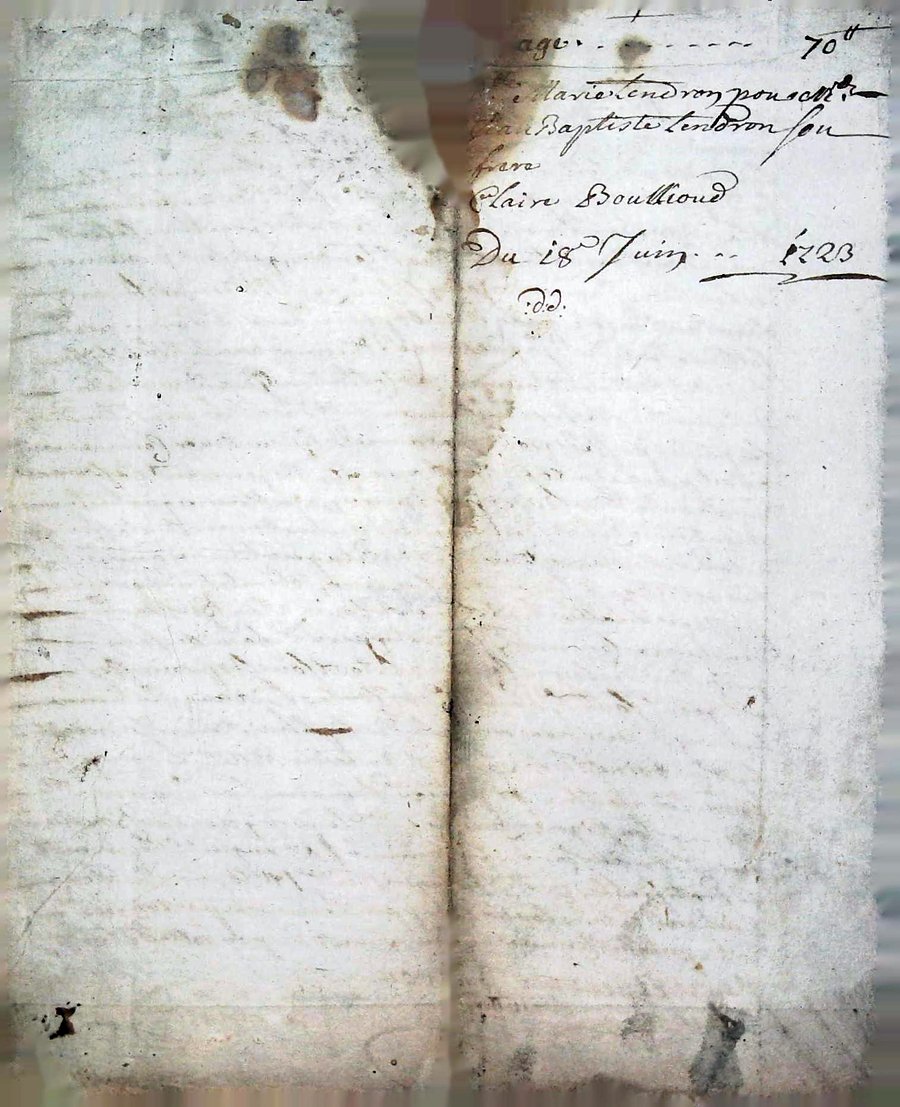 age. . - - - - - - - 70ᵗᵗ
Marie Tendron pour Mʳ
Jean Baptiste Tendron son
frere
Claire Boullioud
Du 18ᵉ Juin. . . 1723
:d:d: